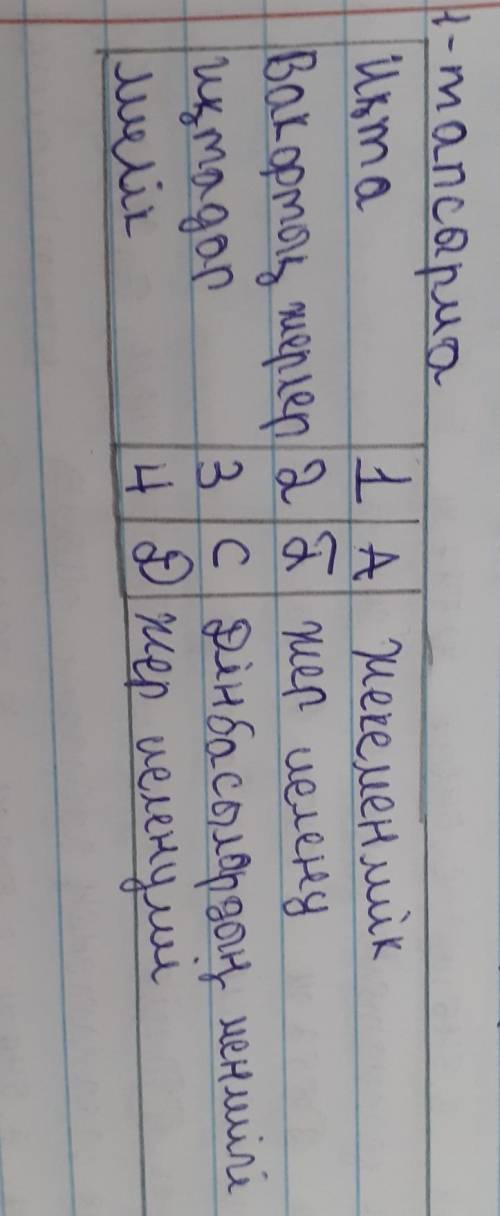 1-тапсырма
Иқта 1 А жекеменшік
Вакфтық жерлер 2 Б жер иелену
иқтадар 3 С Дінбасылардың меншігі
мүлік 4 Д жер иеленуші